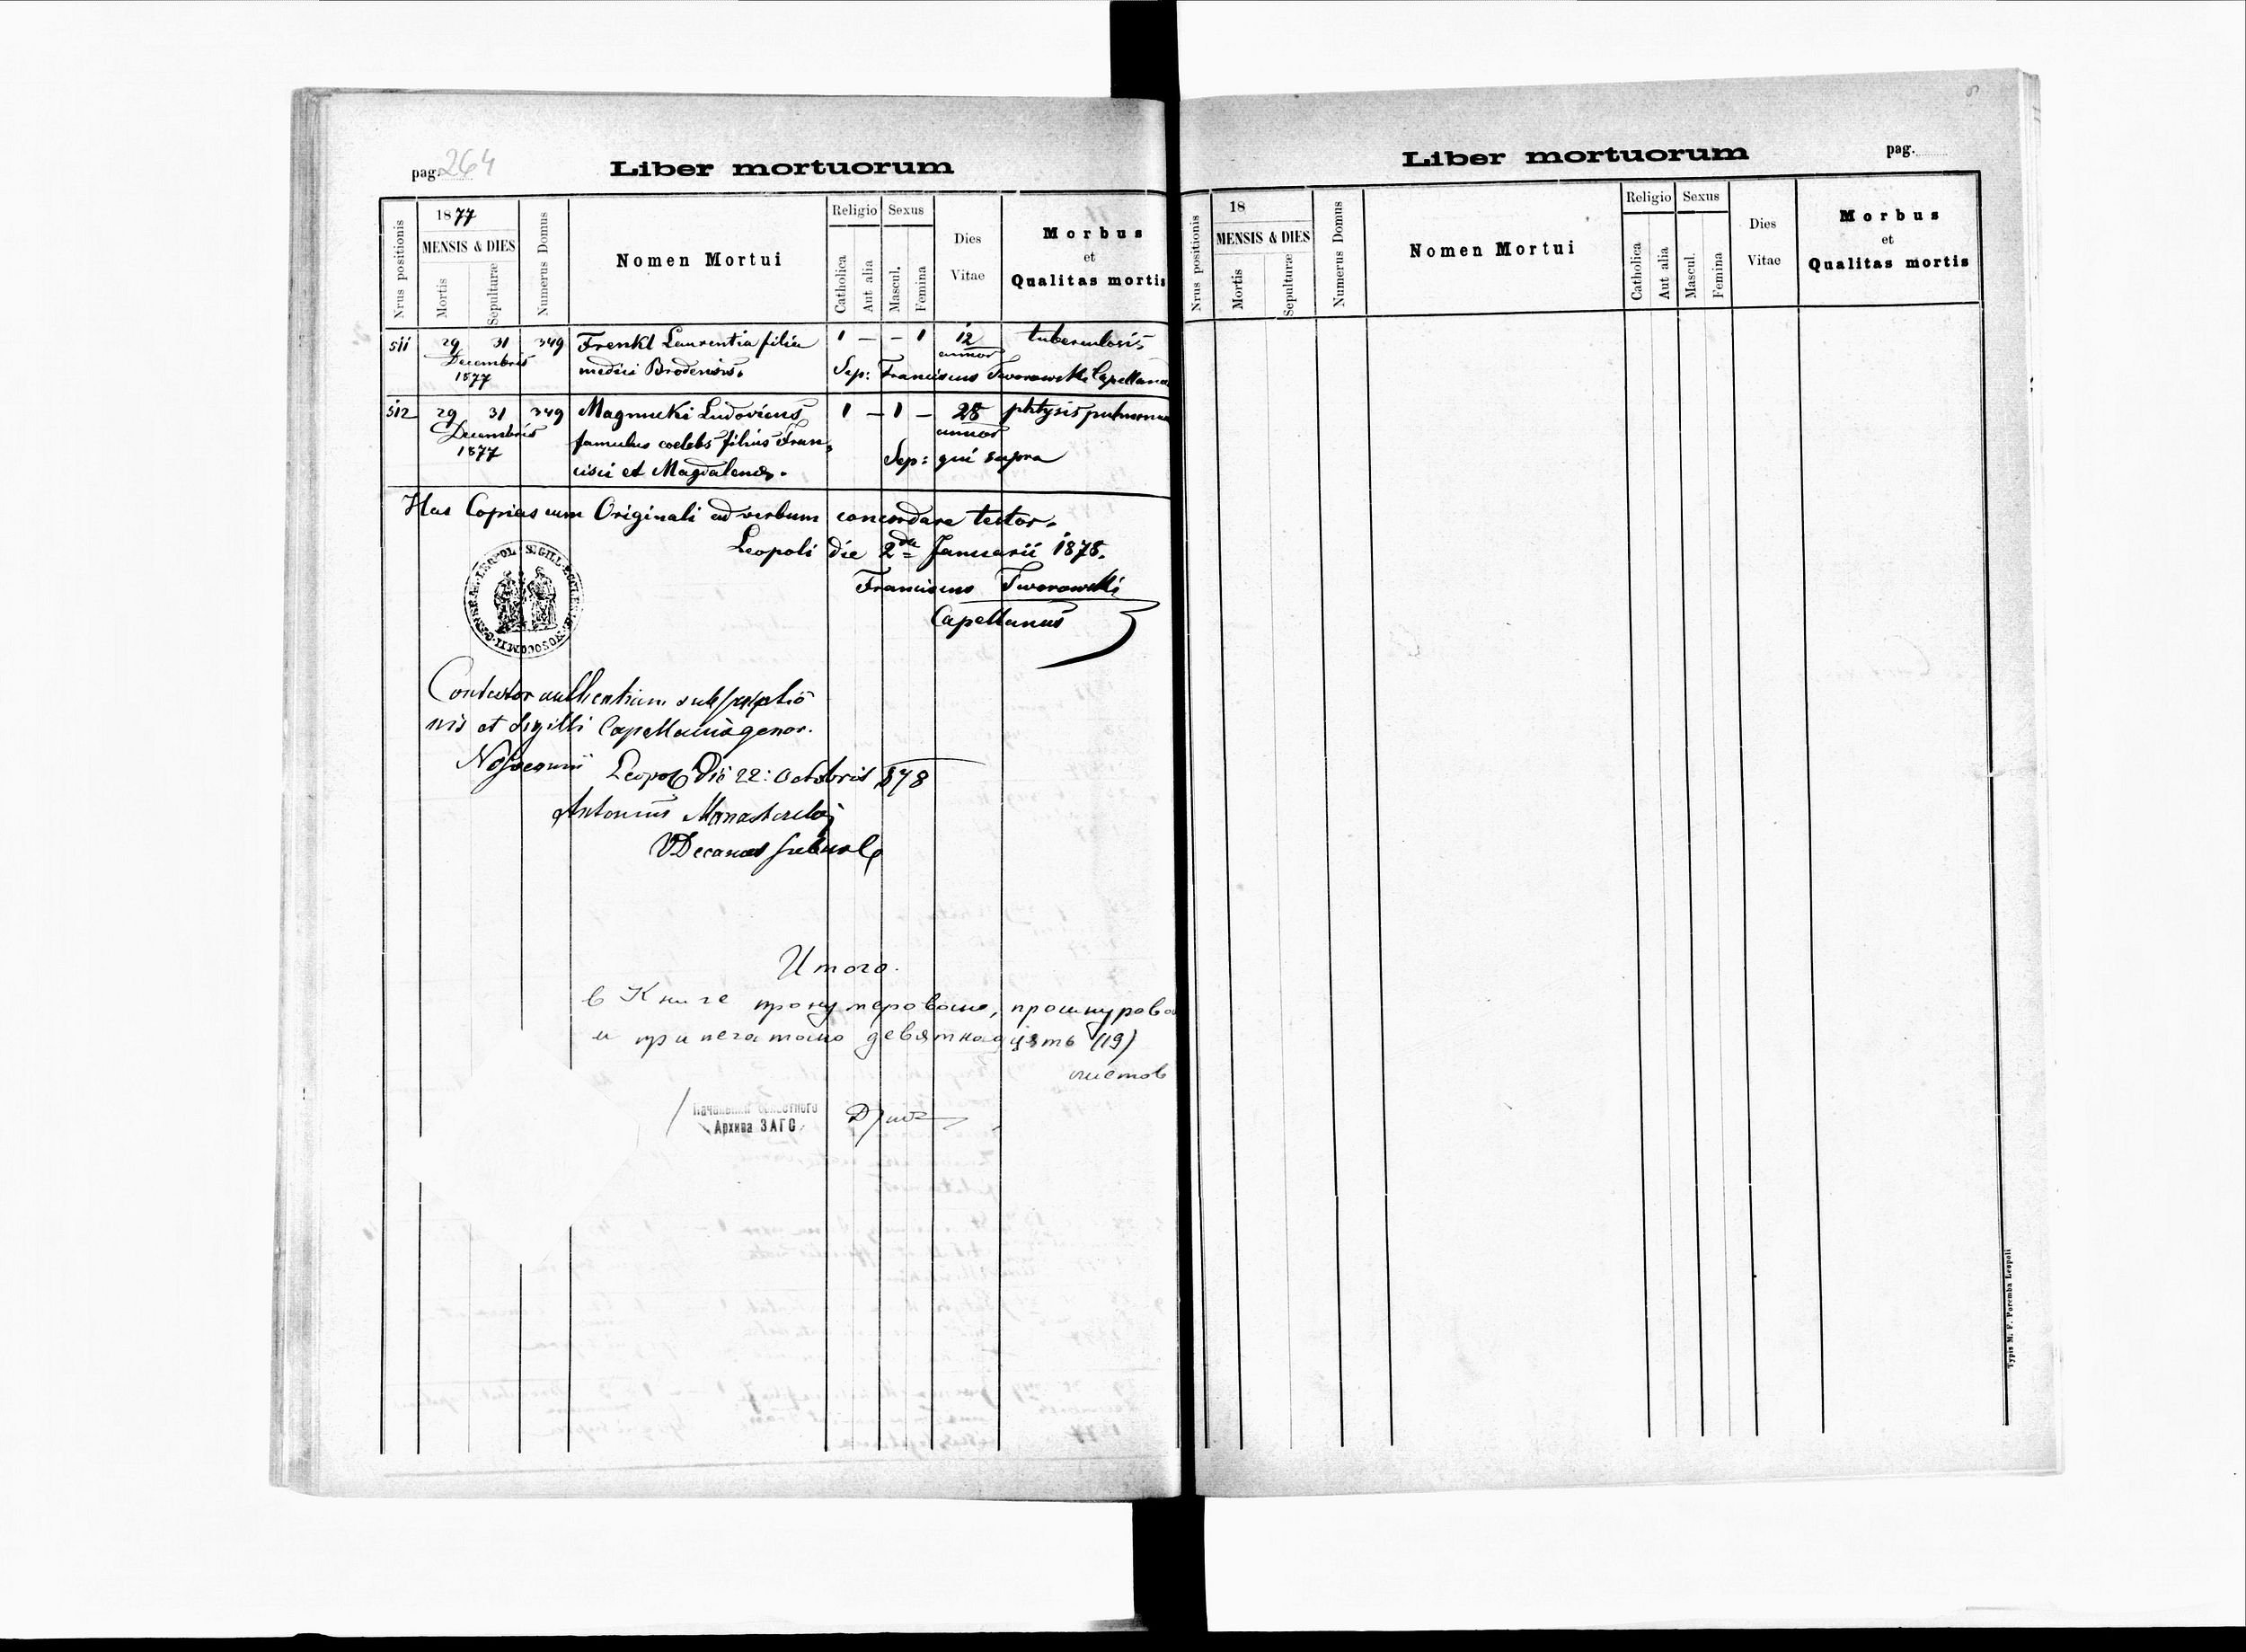 pag. 264
Liber mortuorum
Nrus positionis
1877
MENSIS & DIES
Mortis
Sepulturæ
Numerus Domus
Nomen Mortui
Religio
Catholica
Aut alia
Sexus
Mascul.
Femina
Dies
Vitae
Morbus
et
Qualitas mortis
511 29 31 349 Frenkl Laurentia filia 1 – – 1 12 tuberculosis
Decembris medici Brodensis. annor
1877 Sep: Franciscus Tworowski Capellanus
512 29 31 349 Magnucki Ludovicus 1 – 1 – 28 phtysis pulmonum
Decembris famulus coelebs filius Fran- annor
1877 cisci et Magdalenæ. Sep: qui supra
Has Copias cum Originali ad verbum concordare testor.
Leopoli die 2da Januarii 1878.
Franciscus Tworowski
Capellanus
SIGILL. NOSOCOMII GENER. LEOPOL
Contestor authenticam subscriptio
nis et sigilli Capellaniæ gener.
Nosocomii Leopoli die 22: Octobris 878
Antonius
VDecanus
Итого.
в Книге пронумеровано, прошнурова
и припечатано девятнадцять (19)
листов
Начальник областного
Архива ЗАГС
Liber mortuorum
pag.
Nrus positionis
18
MENSIS & DIES
Mortis
Sepulturæ
Numerus Domus
Nomen Mortui
Religio
Catholica
Aut alia
Sexus
Mascul.
Femina
Dies
Vitae
Morbus
et
Qualitas mortis
Typis M. F. Poremba Leopoli